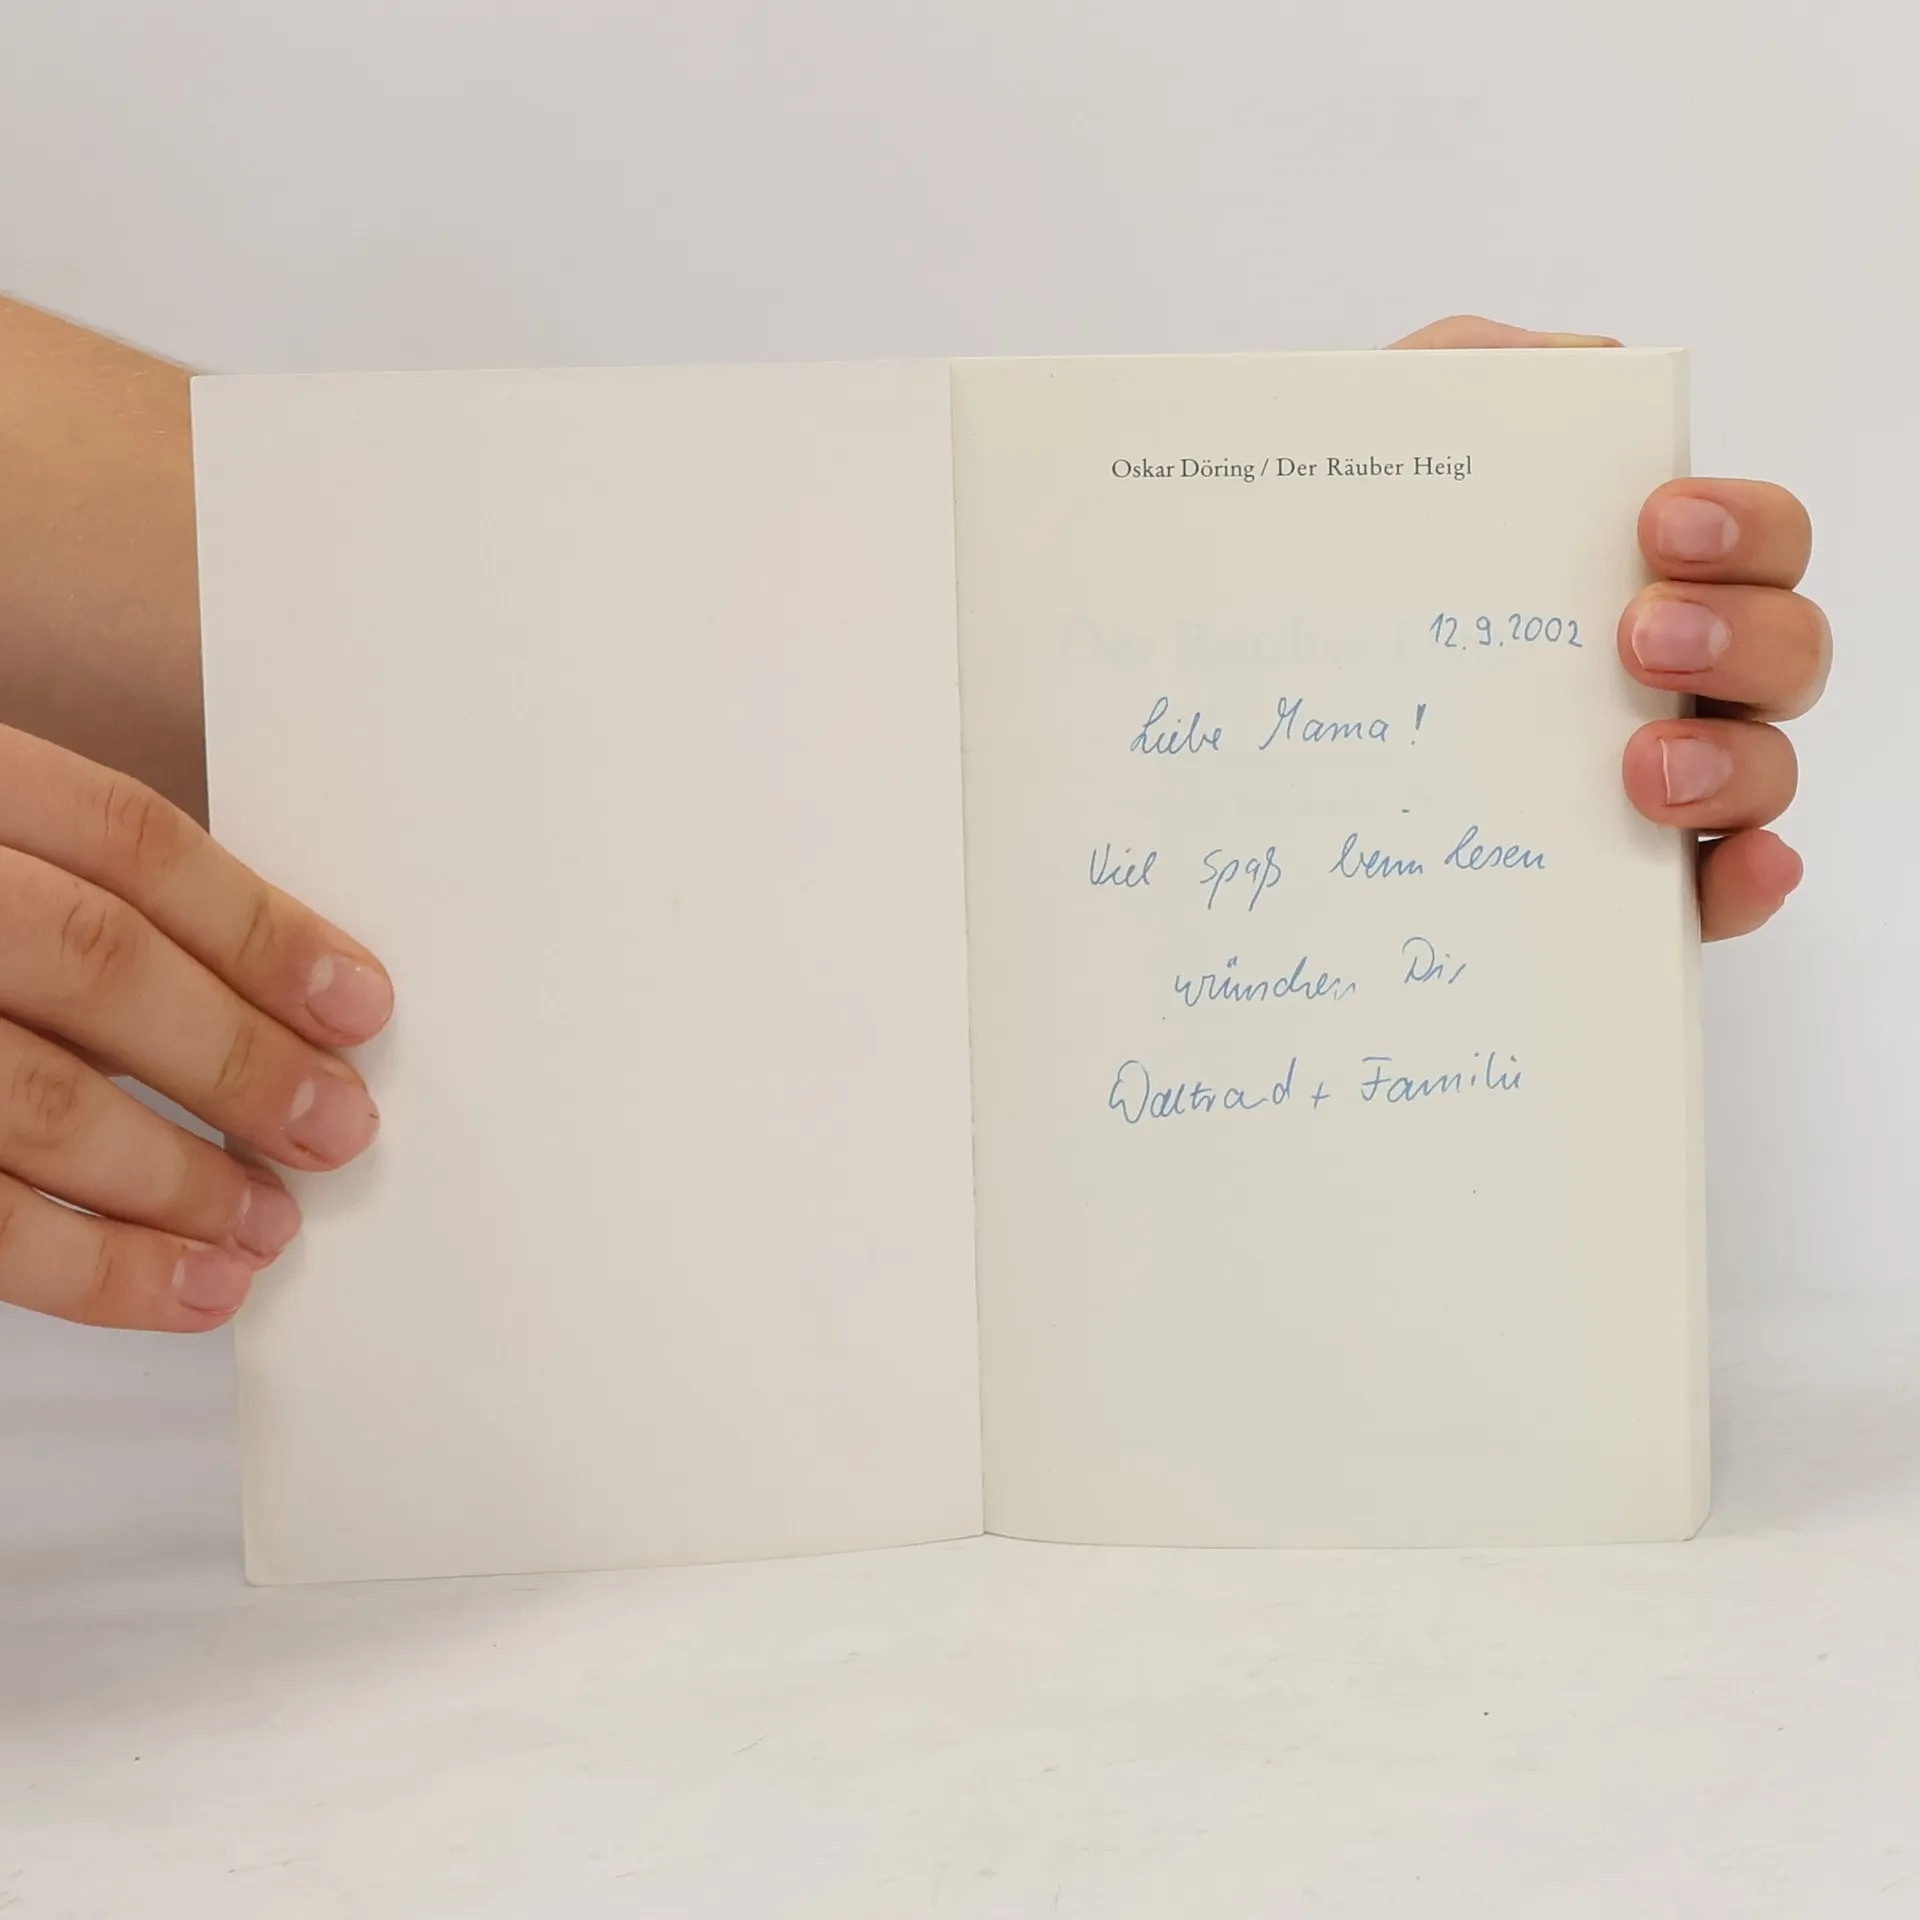 Oskar Döring / Der Räuber Heigl
12.9.2002
Liebe Mama!
Viel Spaß beim Lesen
wünschen Dir
Waltrad + Familie